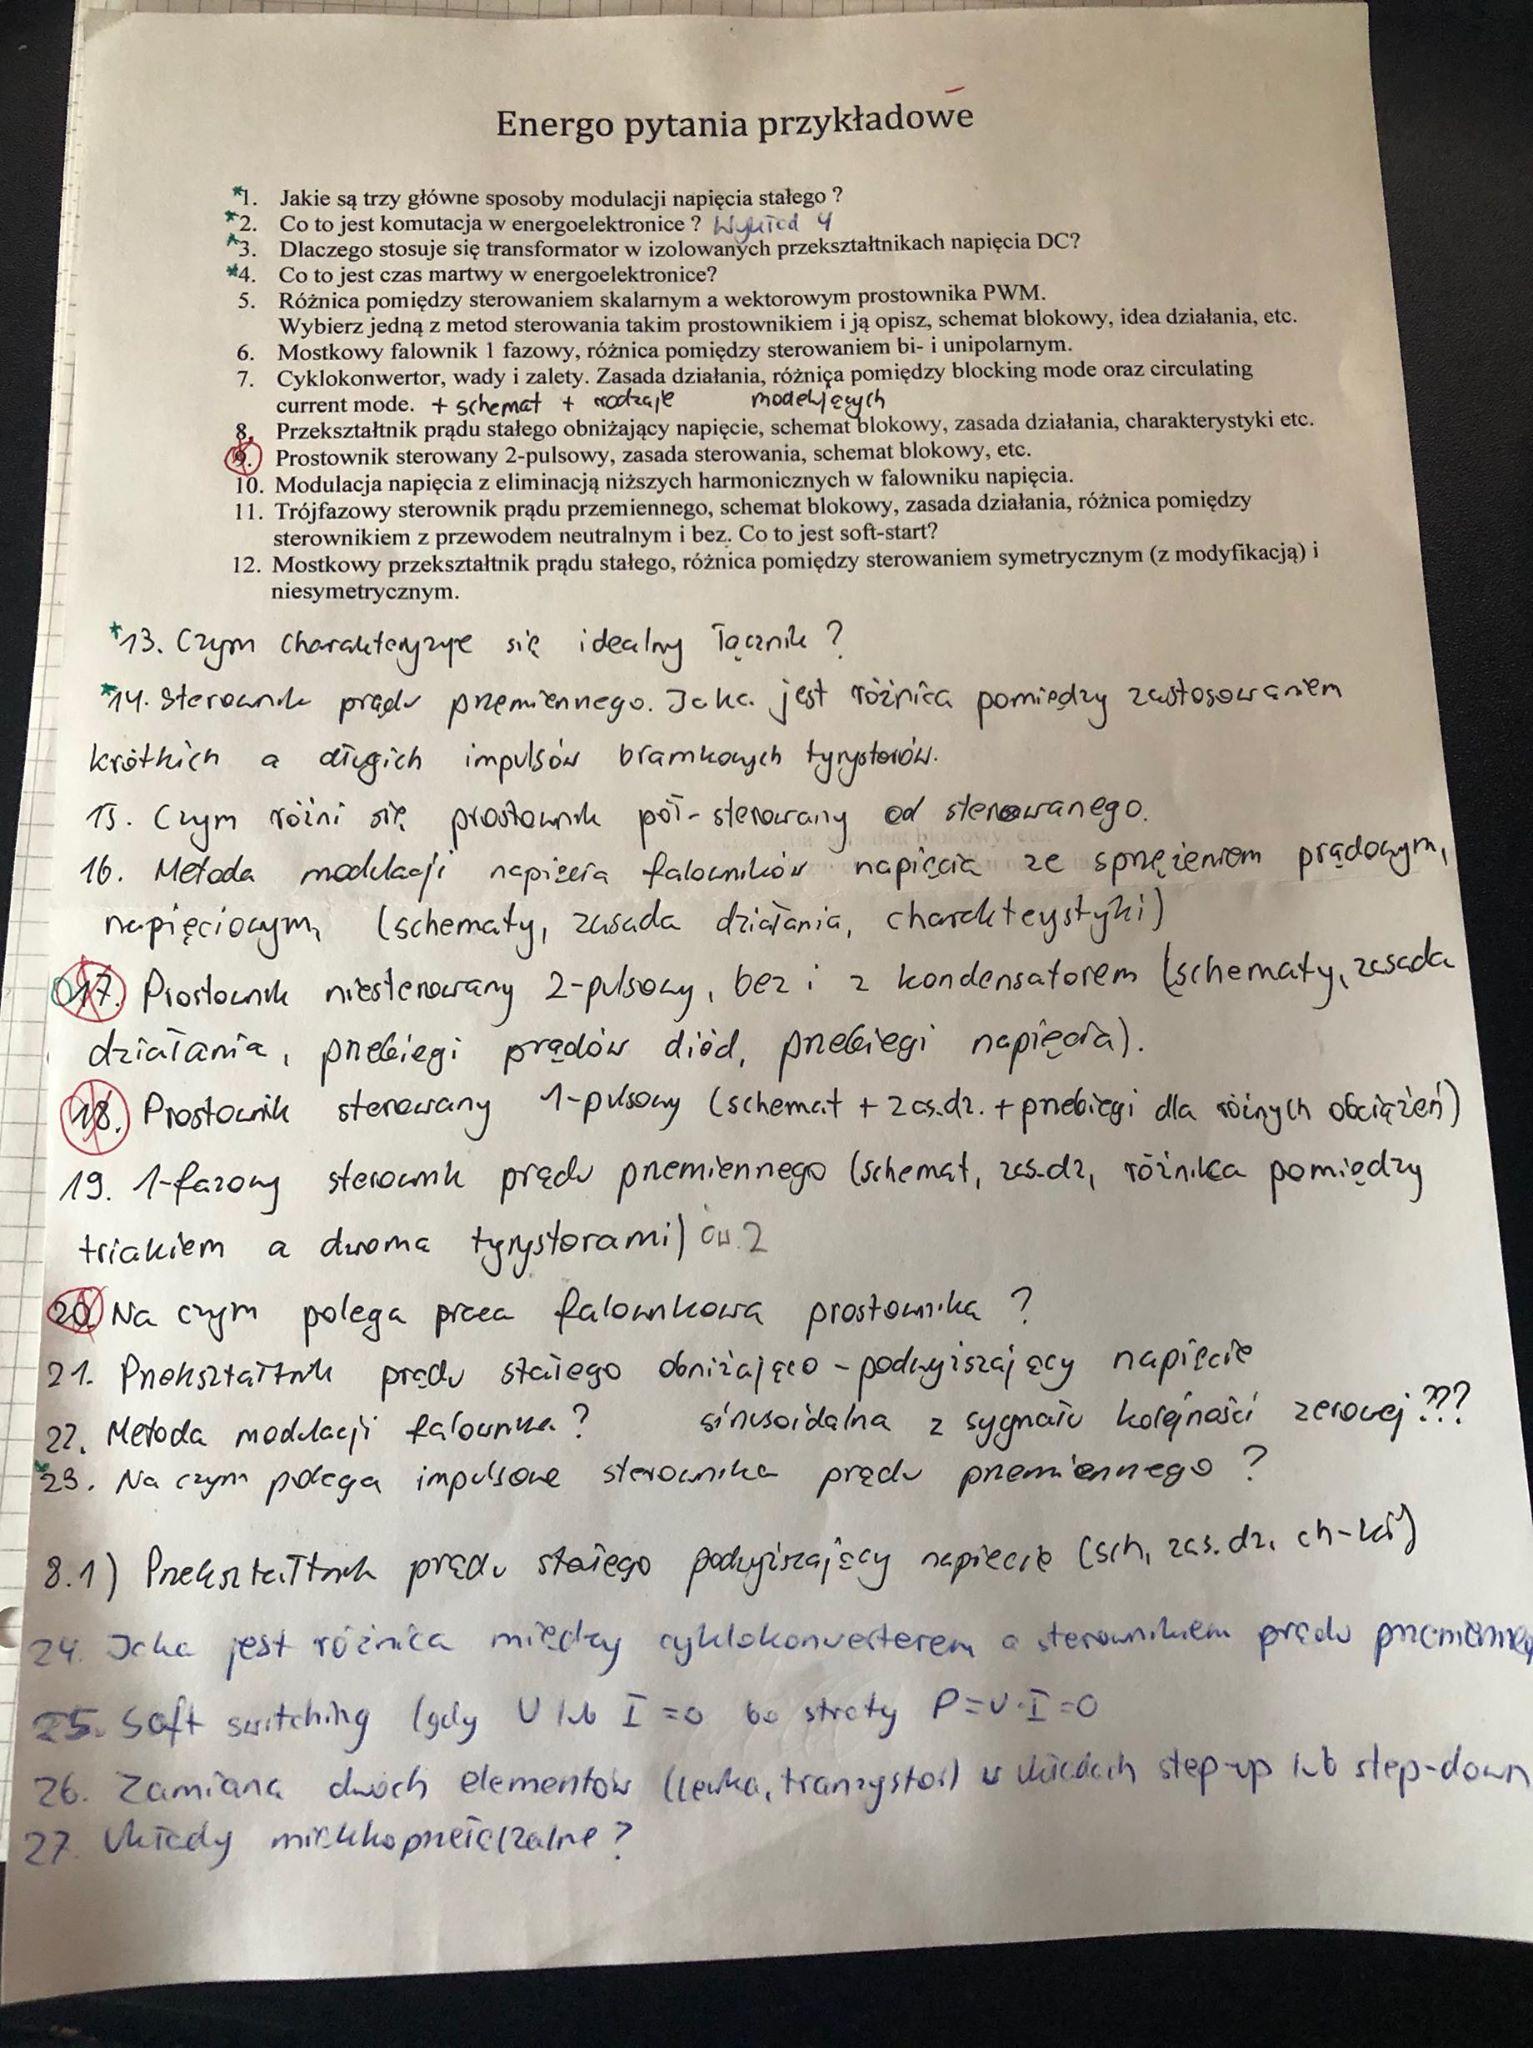 Energo pytania przykładowe
*1. Jakie są trzy główne sposoby modulacji napięcia stałego ?
*2. Co to jest komutacja w energoelektronice ? Wykład 4
*3. Dlaczego stosuje się transformator w izolowanych przekształtnikach napięcia DC?
*4. Co to jest czas martwy w energoelektronice?
5. Różnica pomiędzy sterowaniem skalarnym a wektorowym prostownika PWM.
Wybierz jedną z metod sterowania takim prostownikiem i ją opisz, schemat blokowy, idea działania, etc.
6. Mostkowy falownik 1 fazowy, różnica pomiędzy sterowaniem bi- i unipolarnym.
7. Cyklokonwertor, wady i zalety. Zasada działania, różnica pomiędzy blocking mode oraz circulating
current mode. + schemat + rodzaje modelujących
8. Przekształtnik prądu stałego obniżający napięcie, schemat blokowy, zasada działania, charakterystyki etc.
9. Prostownik sterowany 2-pulsowy, zasada sterowania, schemat blokowy, etc.
10. Modulacja napięcia z eliminacją niższych harmonicznych w falowniku napięcia.
11. Trójfazowy sterownik prądu przemiennego, schemat blokowy, zasada działania, różnica pomiędzy
sterownikiem z przewodem neutralnym i bez. Co to jest soft-start?
12. Mostkowy przekształtnik prądu stałego, różnica pomiędzy sterowaniem symetrycznym (z modyfikacją) i
niesymetrycznym.
*13. Czym charakteryzuje się idealny łącznik ?
*14. Sterownik prądu przemiennego. Jaka jest różnica pomiędzy zastosowaniem
krótkich a długich impulsów bramkowych tyrystorów.
15. Czym różni się prostownik pół-sterowany od sterowanego.
16. Metoda modulacji napięcia falowników napięcia ze sprzężeniem prądowym,
napięciowym, (schematy, zasada działania, charakterystyki)
17. Prostownik niesterowany 2-pulsowy, bez i z kondensatorem (schematy, zasada
działania, przebiegi prądów diód, przebiegi napięcia).
18. Prostownik sterowany 1-pulsowy (schemat + zas.dz. + przebiegi dla różnych obciążeń)
19. 1-fazowy sterownik prądu przemiennego (schemat, zas.dz, różnica pomiędzy
triakiem a dwoma tyrystorami) ćw. 2
20. Na czym polega praca falownikowa prostownika ?
21. Przekształtnik prądu stałego obniżająco - podwyższający napięcie
22. Metoda modulacji falownika ? sinusoidalna z sygnału kolejności zerowej ???
*23. Na czym polega impulsowe sterownika prądu przemiennego ?
8.1) Przekształtnik prądu stałego podwyższający napięcie (sch, zas.dz. ch-ki)
24. Jaka jest różnica między cyklokonverterem a sterownikiem prądu
25. Soft switching (gdy U lub I = 0 bo straty P=U·I=0
26. Zamiana dwóch elementów (cewka, tranzystor) w układach step-up lub step-down
27. Układy miękkoprzełączalne ?